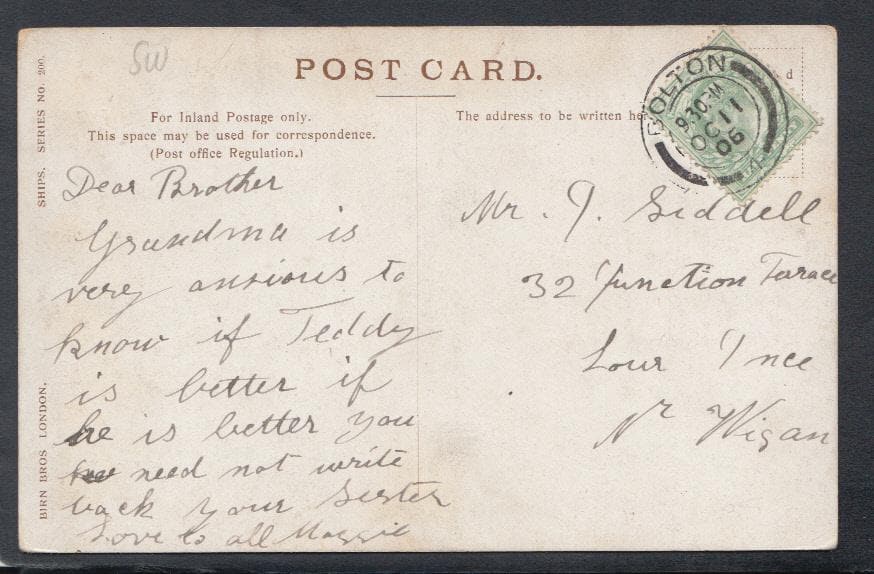 SW
POST CARD.
For Inland Postage only.
This space may be used for correspondence.
(Post office Regulation.)
The address to be written he
d
BOLTON
9.30 PM
OC 11
06
SHIPS. SERIES NO. 200.
BIRN BROS LONDON.
Dear Brother
Grandma is
very ansious to
know if Teddy
is better if
he is better you
need not write
back your Sister
Love to all Maggie
Mr. J. Siddell
32 Junction Tarace
Lour Ince
Nr Wigan